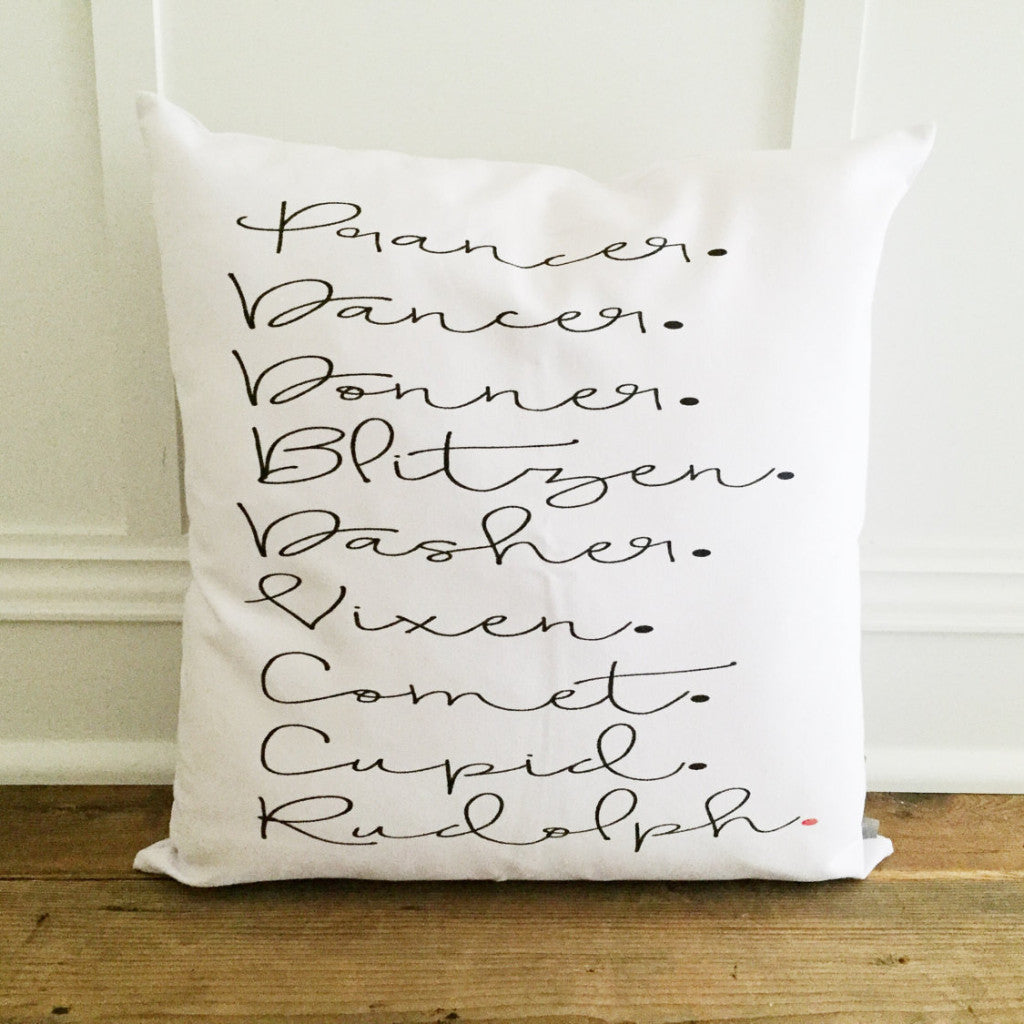 Prancer.
Dancer.
Donner.
Blitzen.
Dasher.
Vixen.
Comet.
Cupid.
Rudolph.